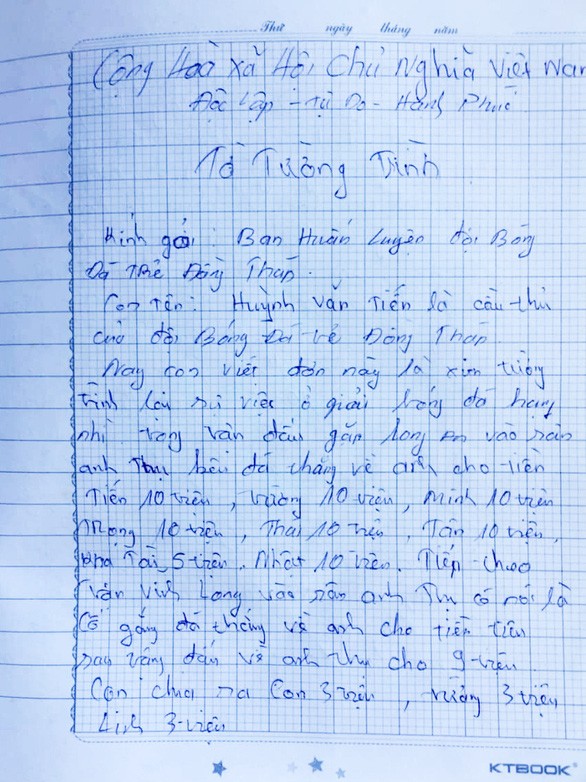 Thứ ngày tháng năm
Cộng Hoà Xã Hội Chủ Nghĩa Việt Nam
Độc Lập - Tự Do - Hành Phúc
Tờ Tường Trình
Kính gởi: Ban Huấn Luyện đội Bóng
Đá Trẻ Đồng Tháp.
Con tên: Huỳnh Văn Tiến là cầu thủ
của đội Bóng Đá trẻ Đồng Tháp.
Nay con viết đơn này là xin tường
Trình lại sự việc ở giải bóng đá hạng
nhì trong trận đấu gặp Long An vào sân
anh Thụ kêu đá thắng về anh cho tiền
Tiến 10 triệu, Vương 10 triệu, Minh 10 triệu
Trọng 10 triệu, Thái 10 triệu, Tân 10 triệu,
Tài 5 triệu. Nhật 10 triệu. Tiếp theo
trận Vinh Long vào sân anh Thụ có nói là
Cố gắng đá thắng về anh cho tiền tiêu
sau trận đấu về anh thụ cho 9 triệu
Con chia ra Con 3 triệu, Vương 3 triệu
Linh 3 triệu
KTBOOK